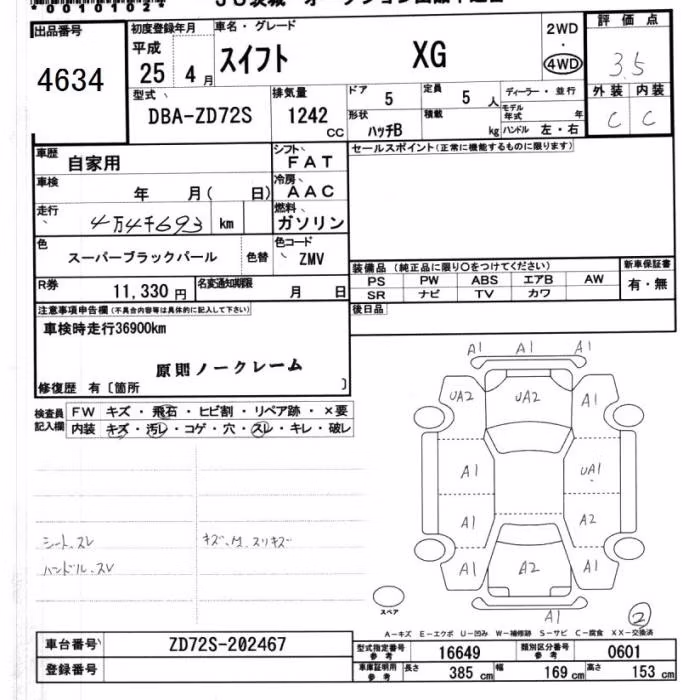 00101024
出品番号
4634
初度登録年月
平成
25 4月
車名・グレード
スイフト XG
2WD
・
4WD
評価点
3.5
外装 内装
C C
型式
DBA-ZD72S
排気量
1242
CC
ドア
5
定員
5 人
形状
ハッチB
積載
kg
ディーラー・並行
モデル年式 年
ハンドル 左・右
車歴
自家用
シフト
FAT
セールスポイント(正常に機能するものに限ります)
車検
年 月( 日)
冷房
AAC
走行
4万4千693 km
燃料
ガソリン
色
スーパーブラックパール
色替
色コード
ZMV
R券
11,330 円
名変通知期限
月 日
装備品 (純正品に限り○をつけてください)
PS PW ABS エアB AW
SR ナビ TV カワ
新車保証書
有・無
後日品
注意事項申告欄(不具合内容等は具体的に記入して下さい)
車検時走行36900km
原則ノークレーム
修復歴 有〔箇所 〕
検査員記入欄
FW キズ・飛石・ヒビ割・リペア跡・×要
内装 キズ・汚レ・コゲ・穴・スレ・キレ・破レ
シート、スレ
ハンドル、スレ
A1 A1 A1
UA2 UA2 A1
A1 UA1
A1 A2
A1 A2 A1
A1
2
スペア
A-キズ E-エクボ U-凹み W-補修跡 S-サビ C-腐食 XX-交換済
車台番号
ZD72S-202467
登録番号
型式指定番号 参考
16649
類別区分番号 参考
0601
車庫証明用 参考
長さ 385 cm
幅 169 cm
高さ 153 cm